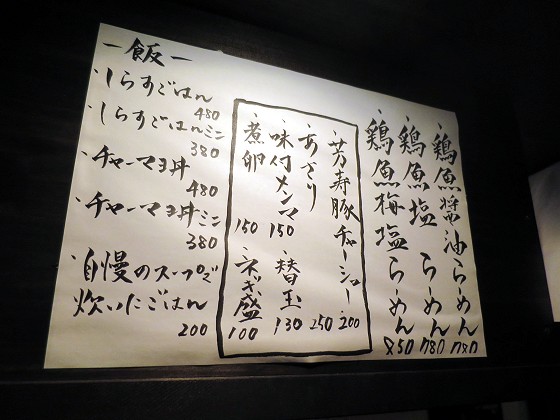 鶏魚醤油らーめん 780
鶏魚塩らーめん 780
鶏魚梅塩らーめん 850
・芳寿豚チャーシュー・200
・あさり 250
・味付メンマ 150
・替玉 130
・煮卵 150
・ネギ盛 100
ー飯ー
・しらすごはん 480
・しらすごはんミニ 380
・チャーマヨ丼 480
・チャーマヨ丼ミニ 380
・自慢のスープで
炊いたごはん 200